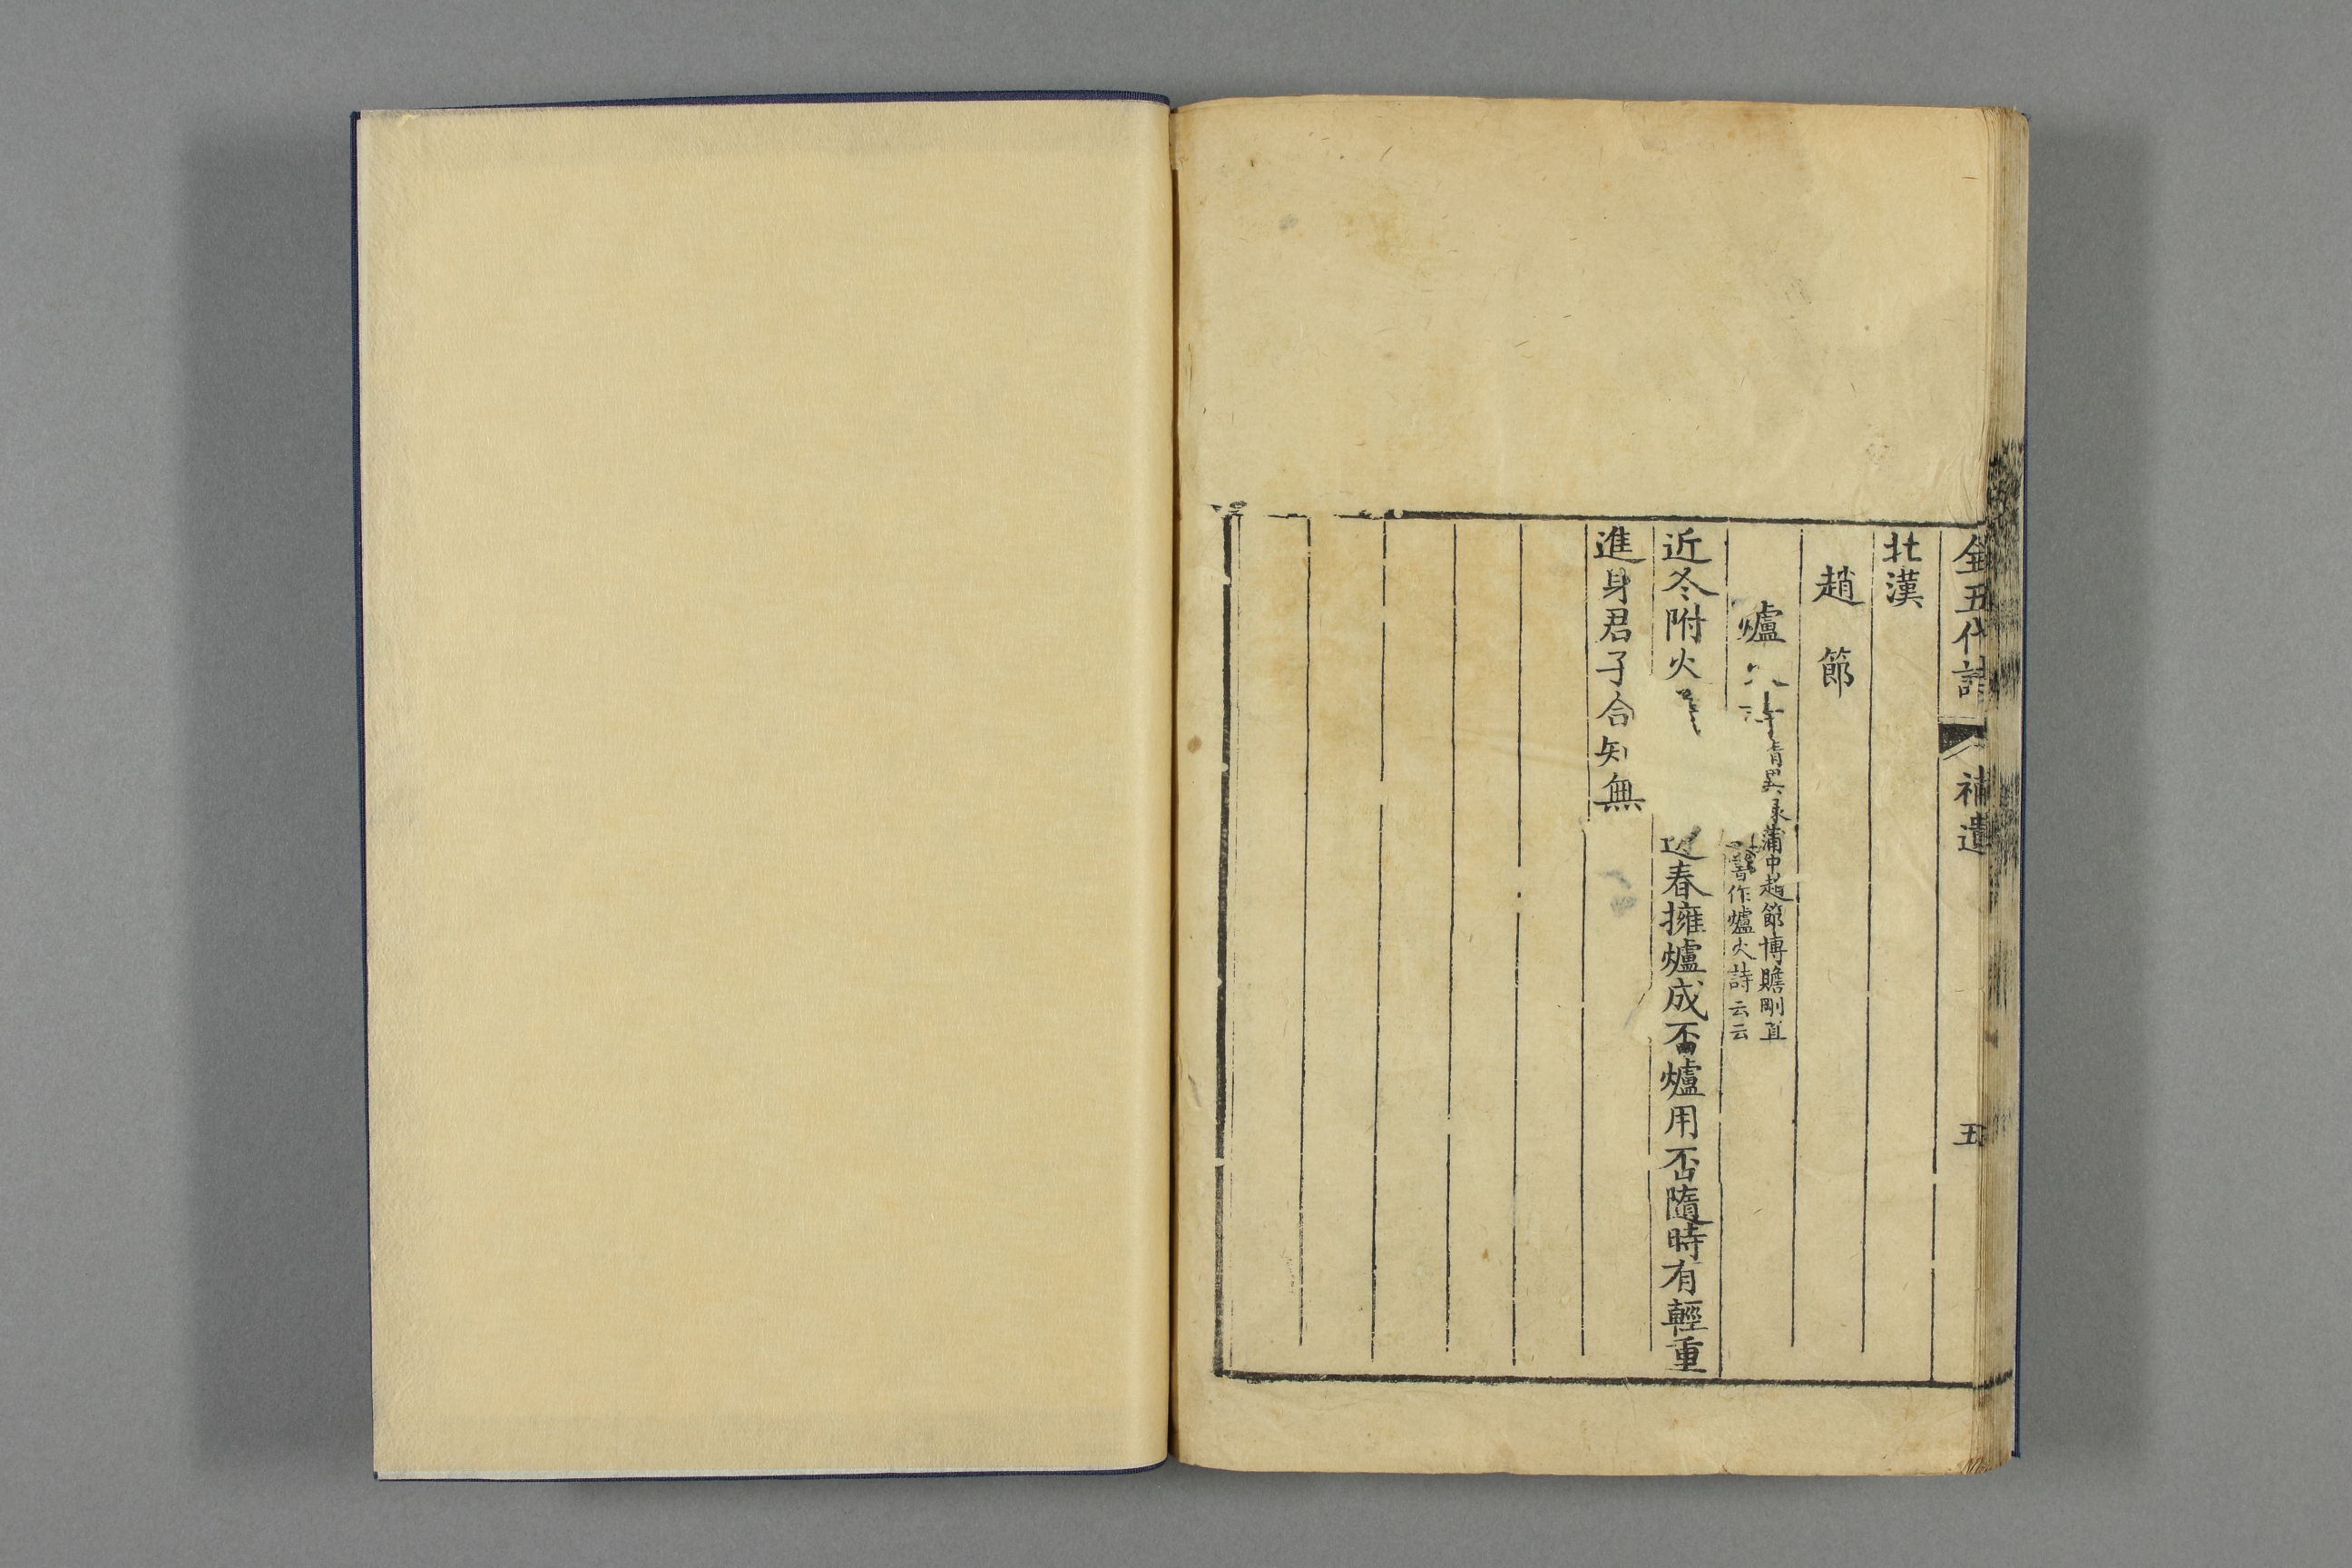 全五代詩 補遺 五
北漢
趙節
爐火詩 清異录蒲中趙節博贍剛直
著作爐火詩云云
近冬附火 近春擁爐成否爐用否隨時有輕重
進身君子合知無